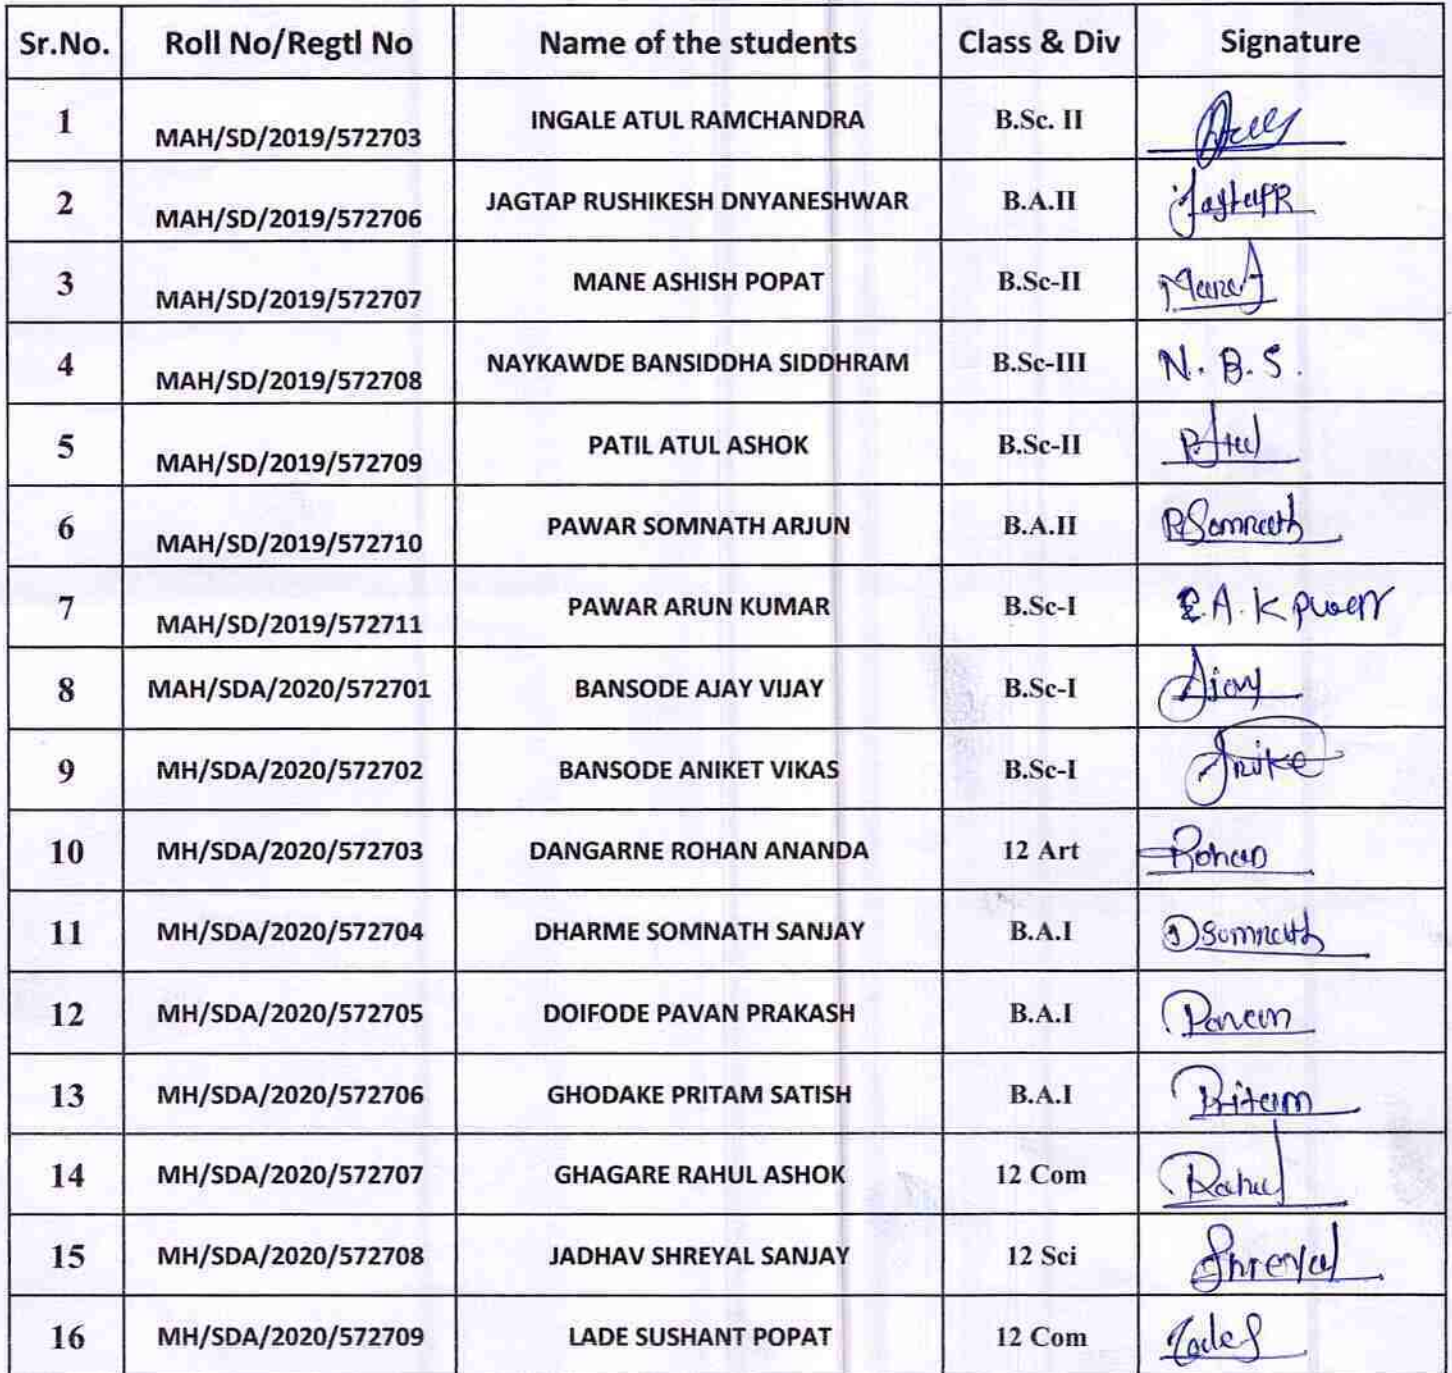 Sr.No. Roll No/Regtl No Name of the students Class & Div Signature
1 MAH/SD/2019/572703 INGALE ATUL RAMCHANDRA B.Sc. II
2 MAH/SD/2019/572706 JAGTAP RUSHIKESH DNYANESHWAR B.A.II
3 MAH/SD/2019/572707 MANE ASHISH POPAT B.Sc-II
4 MAH/SD/2019/572708 NAYKAWDE BANSIDDHA SIDDHRAM B.Sc-III N. B. S.
5 MAH/SD/2019/572709 PATIL ATUL ASHOK B.Sc-II
6 MAH/SD/2019/572710 PAWAR SOMNATH ARJUN B.A.II P.Somnath
7 MAH/SD/2019/572711 PAWAR ARUN KUMAR B.Sc-I
8 MAH/SDA/2020/572701 BANSODE AJAY VIJAY B.Sc-I Ajay
9 MH/SDA/2020/572702 BANSODE ANIKET VIKAS B.Sc-I
10 MH/SDA/2020/572703 DANGARNE ROHAN ANANDA 12 Art Rohan
11 MH/SDA/2020/572704 DHARME SOMNATH SANJAY B.A.I Dsomnath
12 MH/SDA/2020/572705 DOIFODE PAVAN PRAKASH B.A.I Pavan
13 MH/SDA/2020/572706 GHODAKE PRITAM SATISH B.A.I Pritam
14 MH/SDA/2020/572707 GHAGARE RAHUL ASHOK 12 Com Rahul
15 MH/SDA/2020/572708 JADHAV SHREYAL SANJAY 12 Sci Shreyal
16 MH/SDA/2020/572709 LADE SUSHANT POPAT 12 Com LadeS